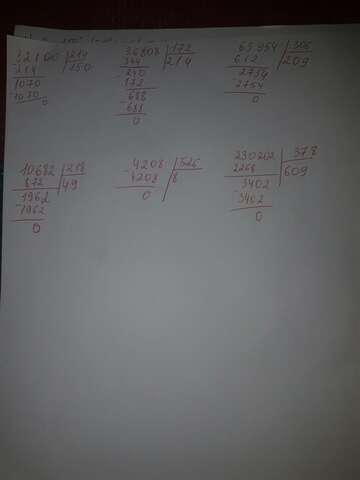 32100 | 214
- 214 | 150
1070
- 1070
0
36808 | 172
344 | 214
- 240
172
- 688
688
0
63954 | 306
612 | 209
- 2754
2754
0
10682 | 218
872 | 49
- 1962
1962
0
- 4208 | 526
4208 | 8
0
230202 | 378
2268 | 609
- 3402
3402
0